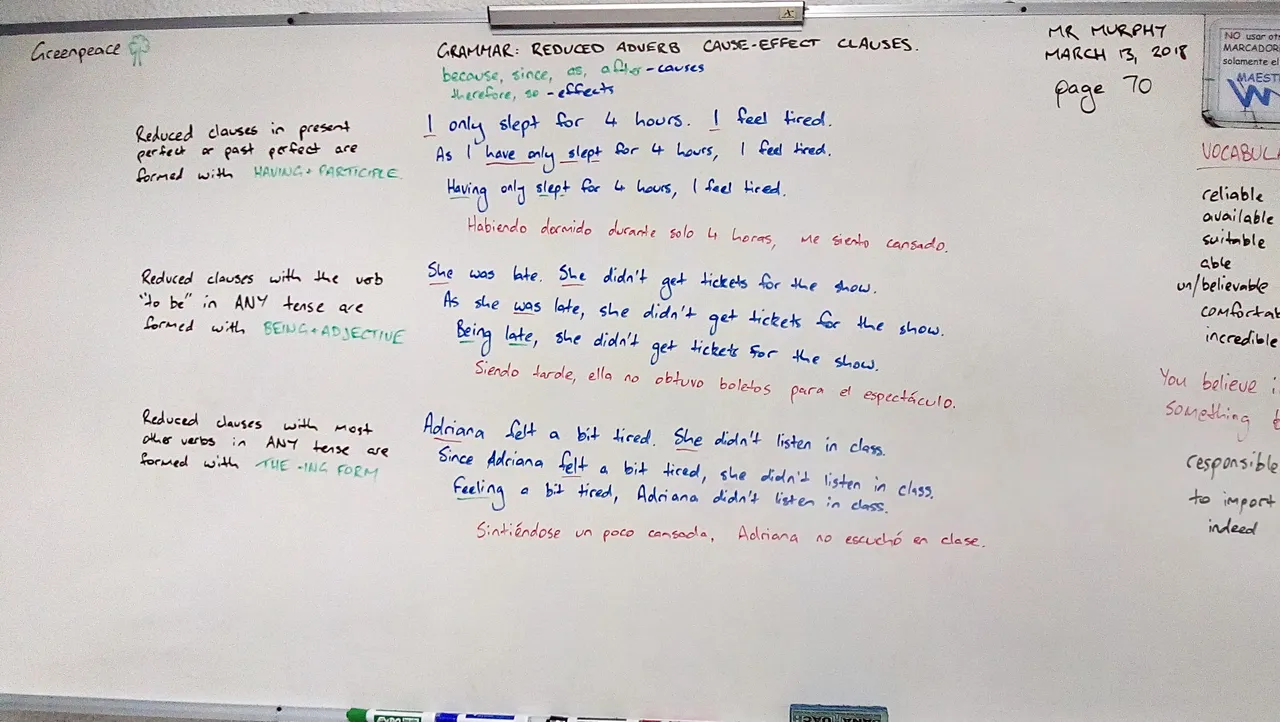 Greenpeace
GRAMMAR: REDUCED ADVERB CAUSE-EFFECT CLAUSES.
because, since, as, after - causes
therefore, so - effects
MR MURPHY
MARCH 13, 2018
page 70
NO usar
MARCADOR
solamente el
MAEST
Reduced clauses in present
perfect or past perfect are
formed with HAVING + PARTICIPLE.
I only slept for 4 hours. I feel tired.
As I have only slept for 4 hours, I feel tired.
Having only slept for 4 hours, I feel tired.
Habiendo dormido durante solo 4 horas, me siento cansado.
Reduced clauses with the verb
"to be" in ANY tense are
formed with BEING + ADJECTIVE
She was late. She didn't get tickets for the show.
As she was late, she didn't get tickets for the show.
Being late, she didn't get tickets for the show.
Siendo tarde, ella no obtuvo boletos para el espectáculo.
Reduced clauses with most
other verbs in ANY tense are
formed with THE -ING FORM
Adriana felt a bit tired. She didn't listen in class.
Since Adriana felt a bit tired, she didn't listen in class.
Feeling a bit tired, Adriana didn't listen in class.
Sintiéndose un poco cansada, Adriana no escuchó en clase.
VOCABULA
reliable
available
suitable
able
un/believable
comfortab
incredible
You believe
something
responsible
to import
indeed